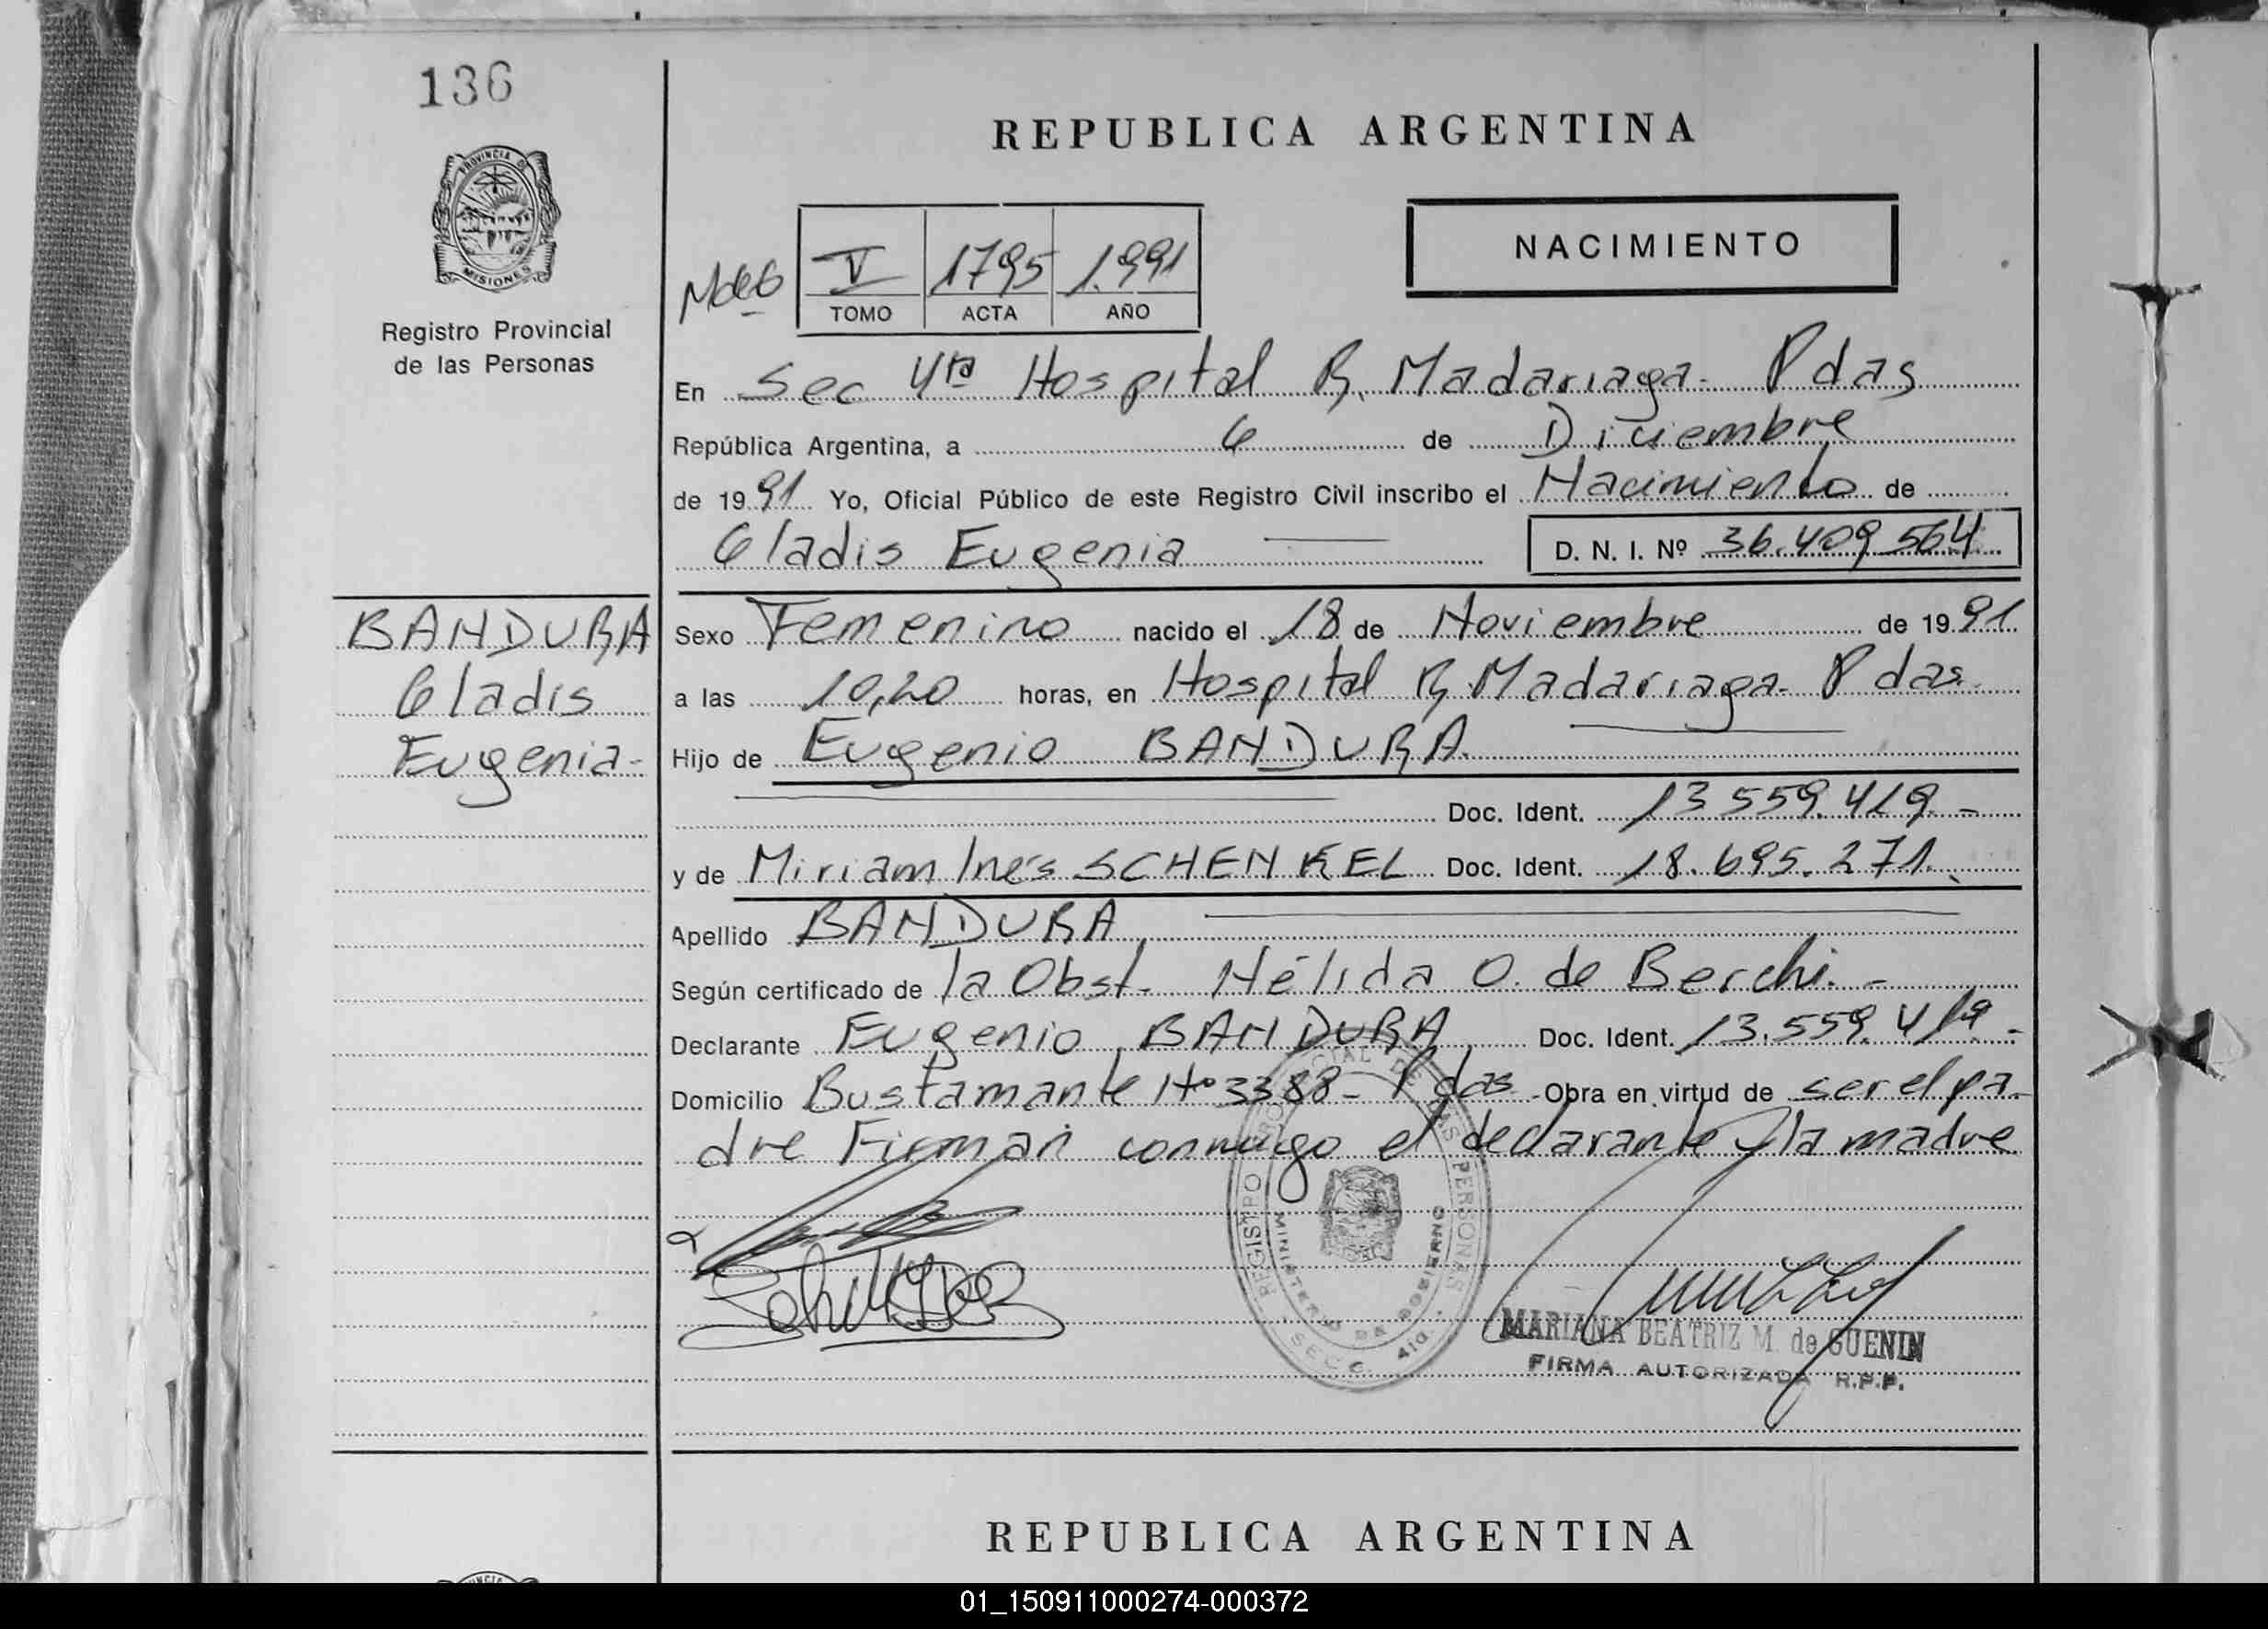 136
PROVINCIA D
MISIONES
Registro Provincial
de las Personas
REPUBLICA ARGENTINA
NACIMIENTO
V 1795 1.991
TOMO ACTA AÑO
En Sec 4ta Hospital R. Madariaga - Pdas
República Argentina, a 6 de Diciembre
de 1991 Yo, Oficial Público de este Registro Civil inscribo el Nacimiento de
Gladis Eugenia
D. N. I. Nº 36.409.564
BANDURA
Gladis
Eugenia-
Sexo Femenino nacido el 18 de Noviembre de 1991
a las 10,20 horas, en Hospital R. Madariaga - Pdas
Hijo de Eugenio BANDURA.
Doc. Ident. 13.559.419.-
y de Miriam Inés SCHENKEL Doc. Ident. 18.695.271.
Apellido BANDURA
Según certificado de la Obst. Nélida O. de Berchi.-
Declarante Eugenio BANDURA Doc. Ident. 13.559.419.-
Domicilio Bustamante Nº 3388 - Pdas Obra en virtud de ser el pa-
dre Firman conmigo el declarante y la madre
REGISTRO DE LAS PERSONAS
MINISTERIO DE GOBIERNO
MARIANA BEATRIZ M. de GUENIN
FIRMA AUTORIZADA R.P.P.
REPUBLICA ARGENTINA
01_150911000274-000372